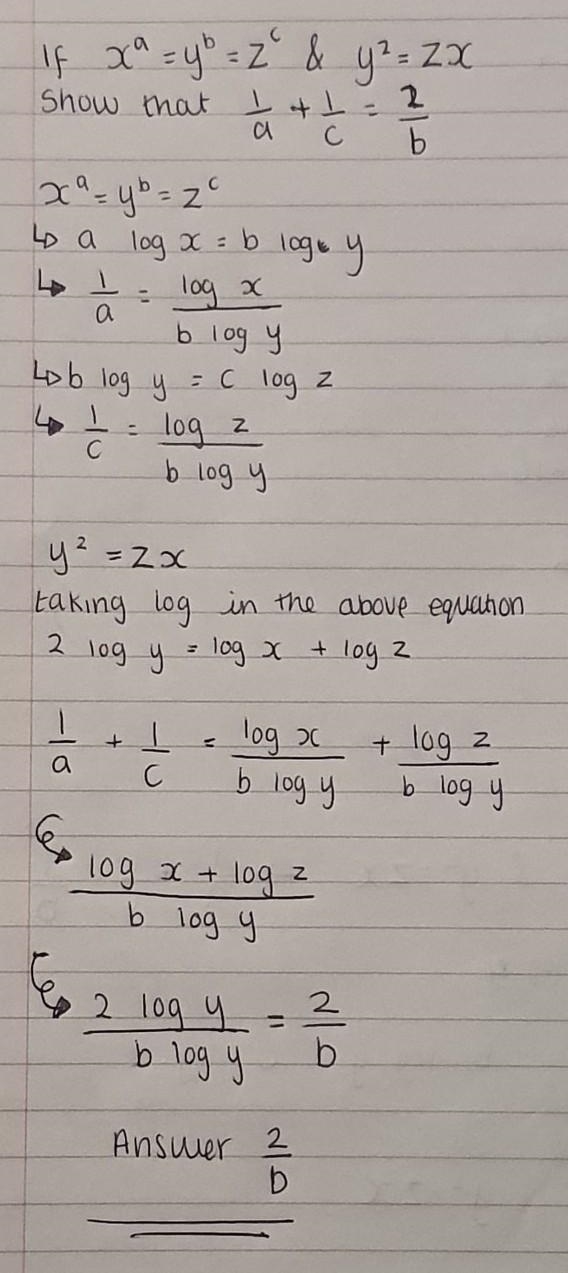 If xᵃ = yᵇ = zᶜ & y² = zx
Show that 1/a + 1/c = 2/b
xᵃ = yᵇ = zᶜ
↳ a log x = b log y
↳ 1/a = log x / b log y
↳ b log y = c log z
↳ 1/c = log z / b log y
y² = zx
taking log in the above equation
2 log y = log x + log z
1/a + 1/c = log x / b log y + log z / b log y
↳ log x + log z / b log y
↳ 2 log y / b log y = 2/b
Answer 2/b